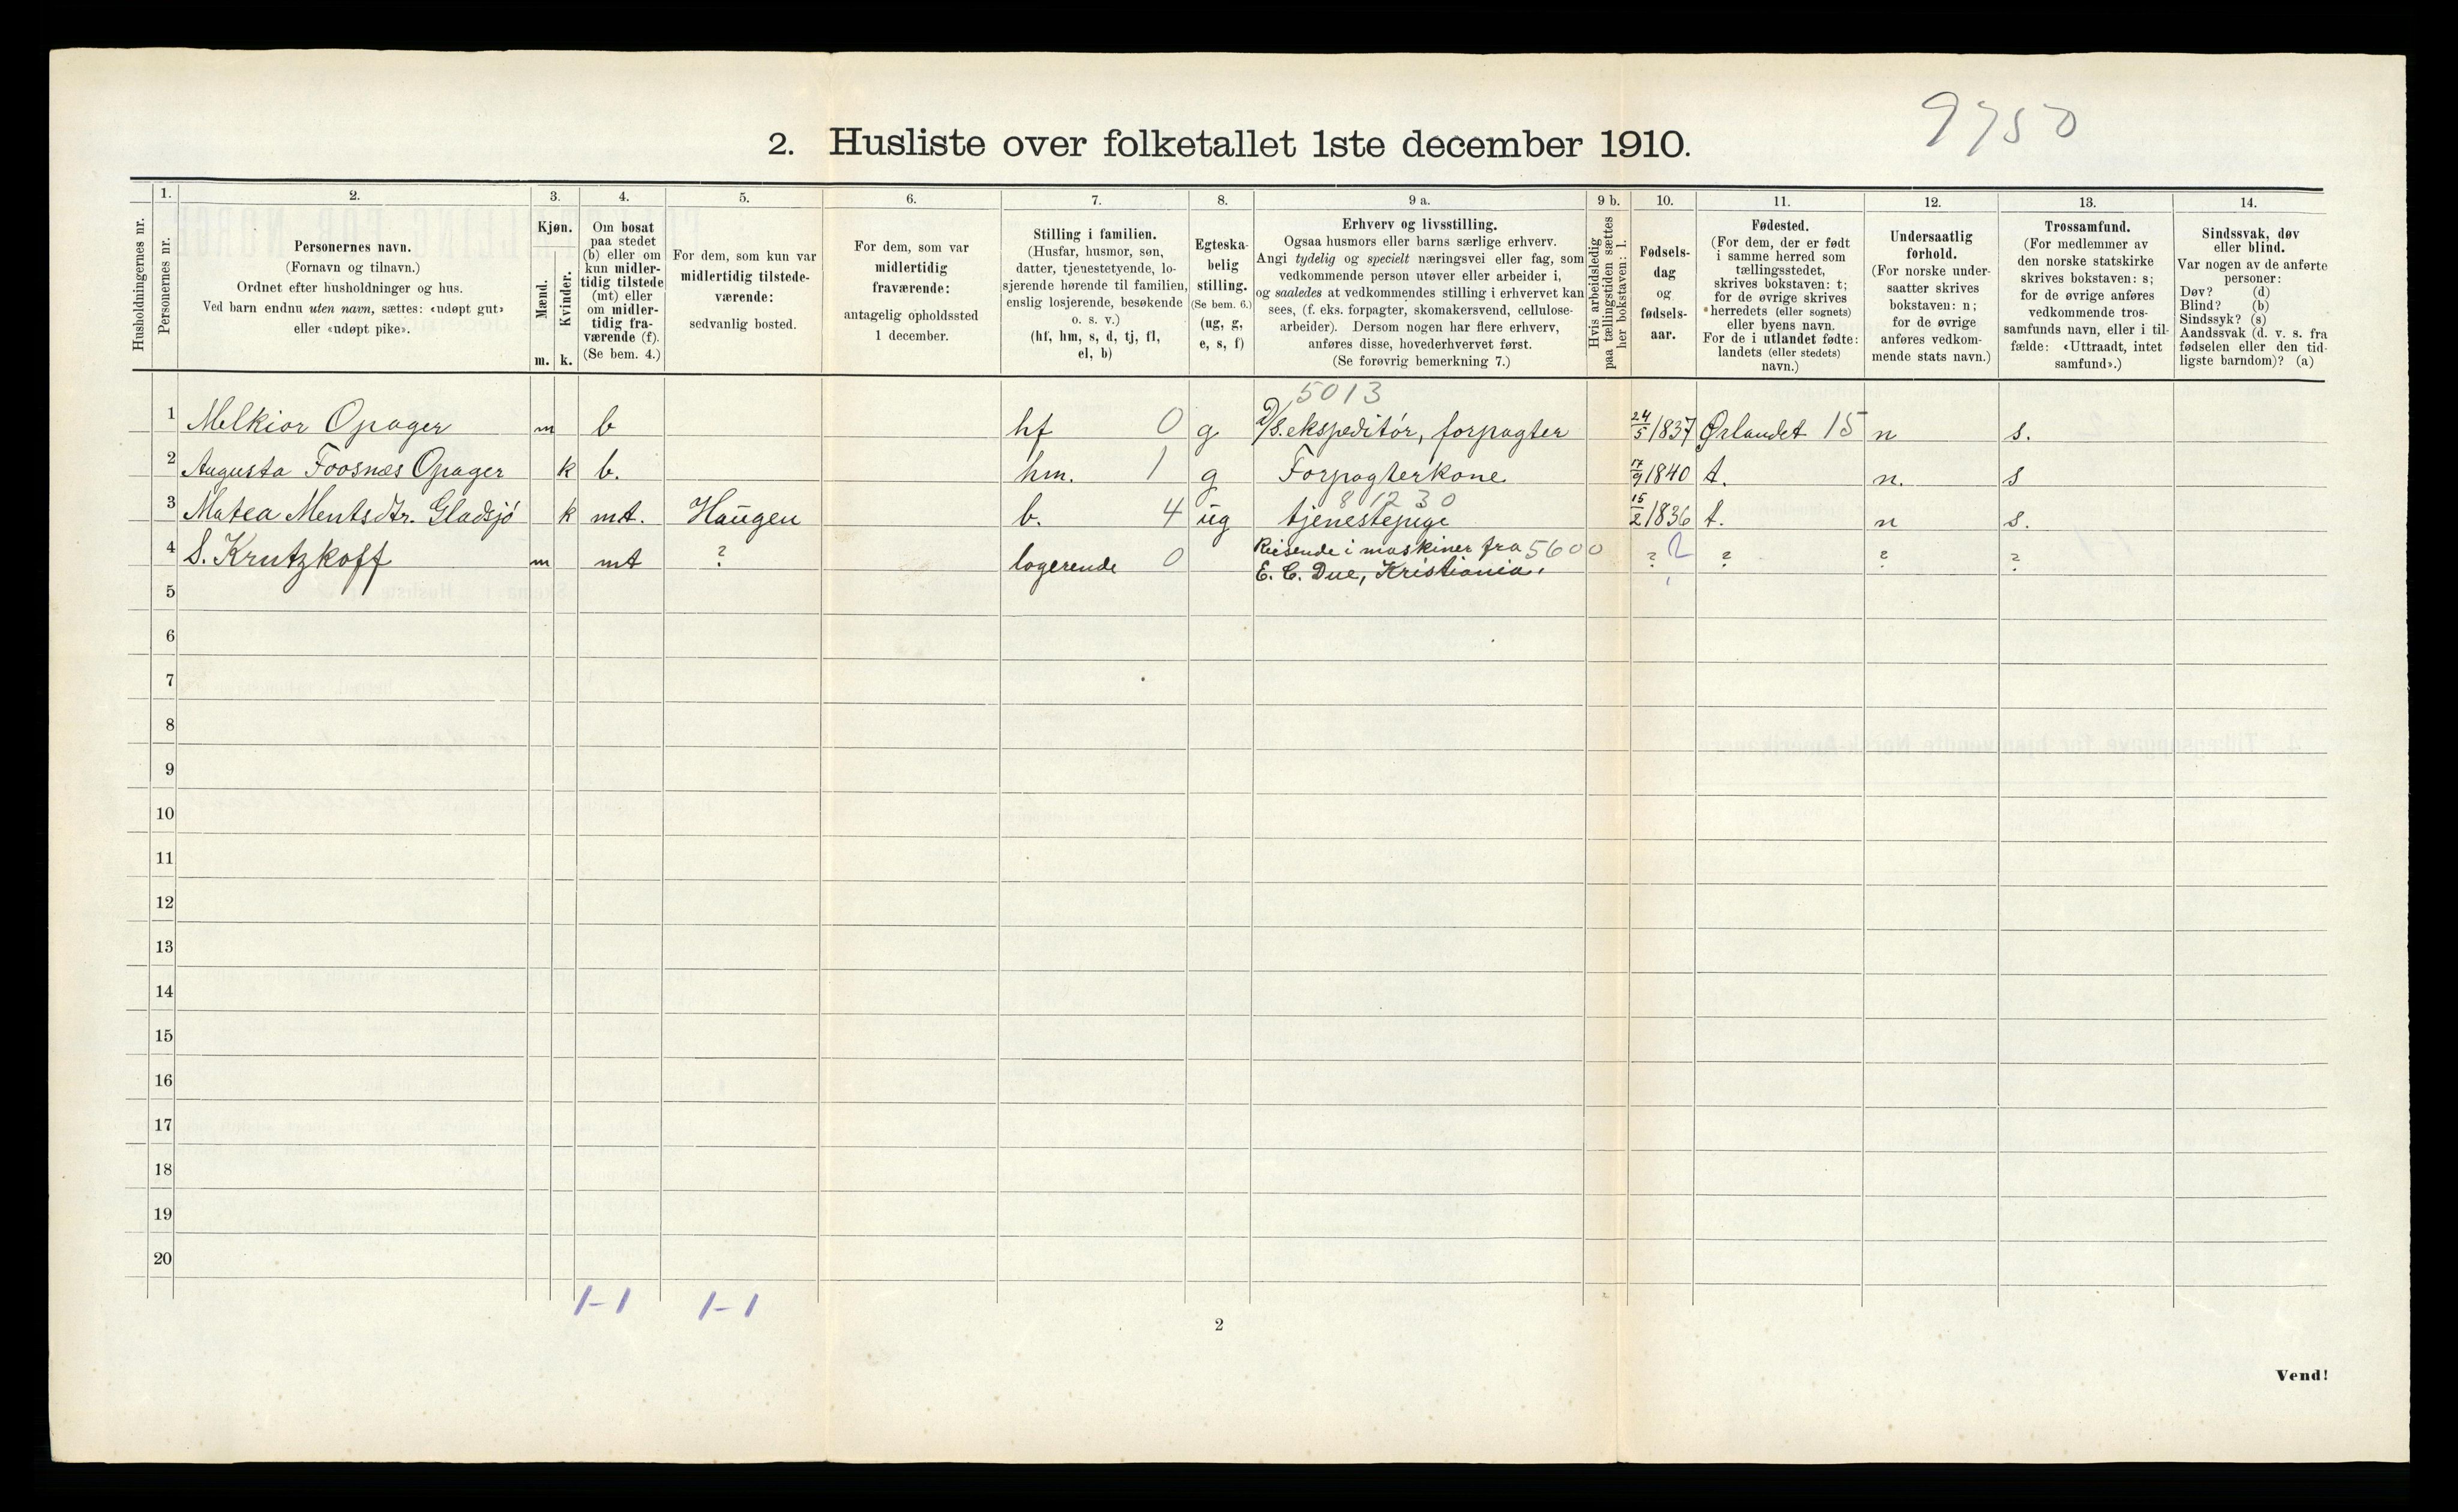 9750
2. Husliste over folketallet 1ste december 1910.
Husholdningernes nr.
1.
Personernes nr.
2.
Personernes navn.
(Fornavn og tilnavn.)
Ordnet efter husholdninger og hus.
Ved barn endnu uten navn, sættes: «udøpt gut»
eller «udøpt pike».
3.
Kjøn.
Mænd.
Kvinder.
m. k.
4.
Om bosat
paa stedet
(b) eller om
kun midler-
tidig tilstede
(mt) eller
om midler-
tidig fra-
værende (f).
(Se bem. 4.)
5.
For dem, som kun var
midlertidig tilstede-
værende:
sedvanlig bosted.
6.
For dem, som var
midlertidig
fraværende:
antagelig opholdssted
1 december.
7.
Stilling i familien.
(Husfar, husmor, søn,
datter, tjenestetyende, lo-
sjerende hørende til familien,
enslig losjerende, besøkende
o. s. v.)
(hf, hm, s, d, tj, fl,
el, b)
8.
Egteska-
belig
stilling.
(Se bem. 6.)
(ug, g,
e, s, f)
9 a.
Erhverv og livsstilling.
Ogsaa husmors eller barns særlige erhverv.
Angi tydelig og specielt næringsvei eller fag, som
vedkommende person utøver eller arbeider i,
og saaledes at vedkommendes stilling i erhvervet kan
sees, (f. eks. forpagter, skomakersvend, cellulose-
arbeider). Dersom nogen har flere erhverv,
anføres disse, hovederhvervet først.
(Se forøvrig bemerkning 7.)
9 b.
Hvis arbeidsledig
paa tællingstiden sættes
her bokstaven: l.
10.
Fødsels-
dag
og
fødsels-
aar.
11.
Fødested.
(For dem, der er født
i samme herred som
tællingsstedet,
skrives bokstaven: t;
for de øvrige skrives
herredets (eller sognets)
eller byens navn.
For de i utlandet fødte:
landets (eller stedets)
navn.)
12.
Undersaatlig
forhold.
(For norske under-
saatter skrives
bokstaven: n;
for de øvrige
anføres vedkom-
mende stats navn.)
13.
Trossamfund.
(For medlemmer av
den norske statskirke
skrives bokstaven: s;
for de øvrige anføres
vedkommende tros-
samfunds navn, eller i til-
fælde: «Uttraadt, intet
samfund».)
14.
Sindssvak, døv
eller blind.
Var nogen av de anførte
personer:
Døv? (d)
Blind? (b)
Sindssyk? (s)
Aandssvak (d. v. s. fra
fødselen eller den tid-
ligste barndom)? (a)
5013
1 Melkior Opager m b hf 0 g D/S. ekspeditör, forpagter 24/5 1837 Ørlandet 15 n s.
2 Augusta Foosnæs Opager k b. hm. 1 g Forpagterkone 17/9 1840 t. n. s
81230
3 Matea Mentsdtr. Gladsjö k mt. Haugen b. 4 ug tjenestepige 15/2 1836 t. n s.
4 S. Krutzkoff m mt ? logerende 0 Reisende i maskiner fra 5600 ? 2 ? ? ?
E. C. Due, Kristiania.
5
6
7
8
9
10
11
12
13
14
15
16
17
18
19
20
1-1 1-1
2
Vend!